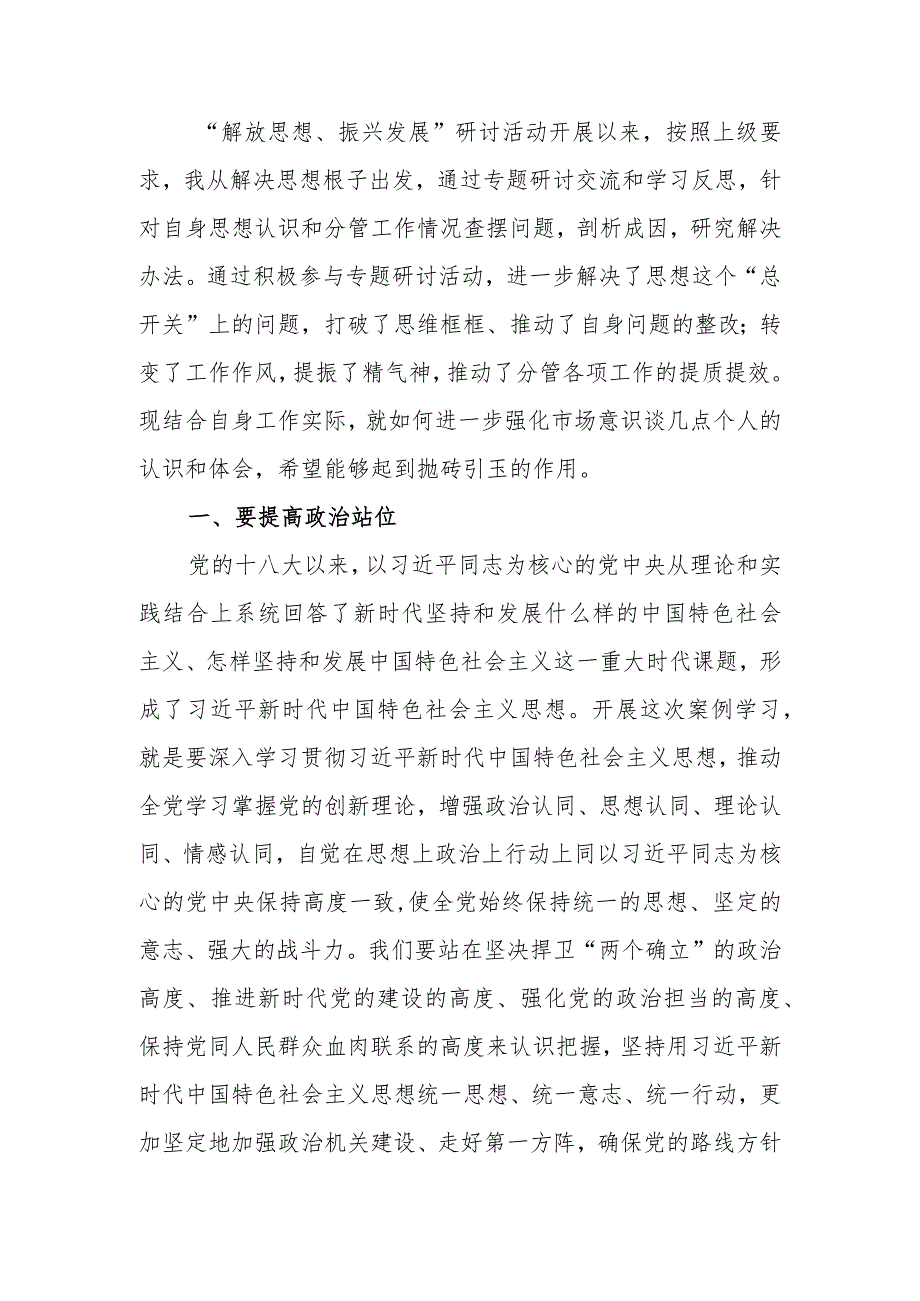 “解放思想、振兴发展”研讨活动开展以来，按照上级要
求，我从解决思想根子出发，通过专题研讨交流和学习反思，针
对自身思想认识和分管工作情况查摆问题，剖析成因，研究解决
办法。通过积极参与专题研讨活动，进一步解决了思想这个“总
开关”上的问题，打破了思维框框、推动了自身问题的整改；转
变了工作作风，提振了精气神，推动了分管各项工作的提质提效。
现结合自身工作实际，就如何进一步强化市场意识谈几点个人的
认识和体会，希望能够起到抛砖引玉的作用。
一、要提高政治站位
党的十八大以来，以习近平同志为核心的党中央从理论和实
践结合上系统回答了新时代坚持和发展什么样的中国特色社会
主义、怎样坚持和发展中国特色社会主义这一重大时代课题，形
成了习近平新时代中国特色社会主义思想。开展这次案例学习，
就是要深入学习贯彻习近平新时代中国特色社会主义思想，推动
全党学习掌握党的创新理论，增强政治认同、思想认同、理论认
同、情感认同，自觉在思想上政治上行动上同以习近平同志为核
心的党中央保持高度一致,使全党始终保持统一的思想、坚定的
意志、强大的战斗力。我们要站在坚决捍卫“两个确立”的政治
高度、推进新时代党的建设的高度、强化党的政治担当的高度、
保持党同人民群众血肉联系的高度来认识把握，坚持用习近平新
时代中国特色社会主义思想统一思想、统一意志、统一行动，更
加坚定地加强政治机关建设、走好第一方阵，确保党的路线方针